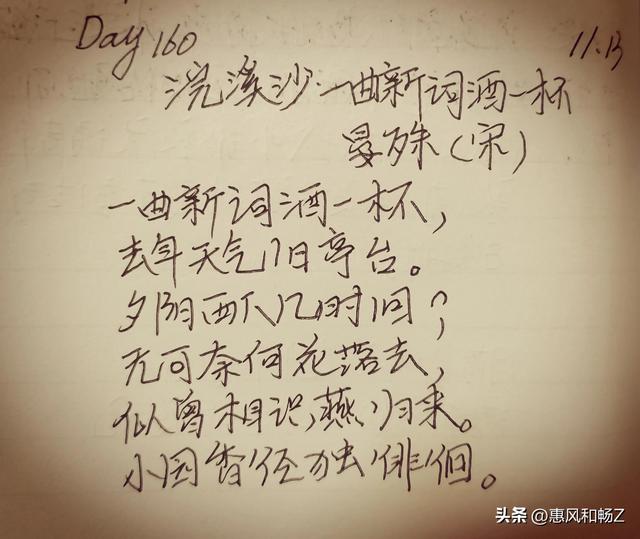 Day 160 11.13
浣溪沙·一曲新词酒一杯
晏殊(宋)
一曲新词酒一杯,
去年天气旧亭台。
夕阳西下几时回?
无可奈何花落去,
似曾相识燕归来。
小园香径独徘徊。
头条 @惠风和畅Z